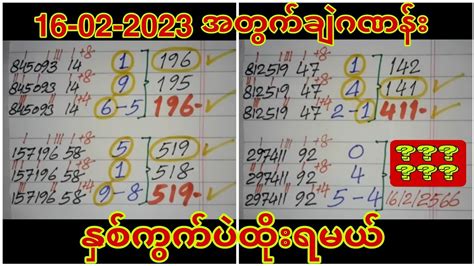 16-02-2023 အတွက်ချဲဂဏန်း
845093 14 1 196
845093 14 9 195
845093 14 6-5 196-
157196 58 5 519
157196 58 1 518
157196 58 9-8 519-
812519 47 1 142
812519 47 4 141
812519 47 2-1 411-
297411 92 0 ???
297411 92 4 ???
297411 92 5-4 16/2/2566
နှစ်ကွက်ပဲထိုးရမယ်